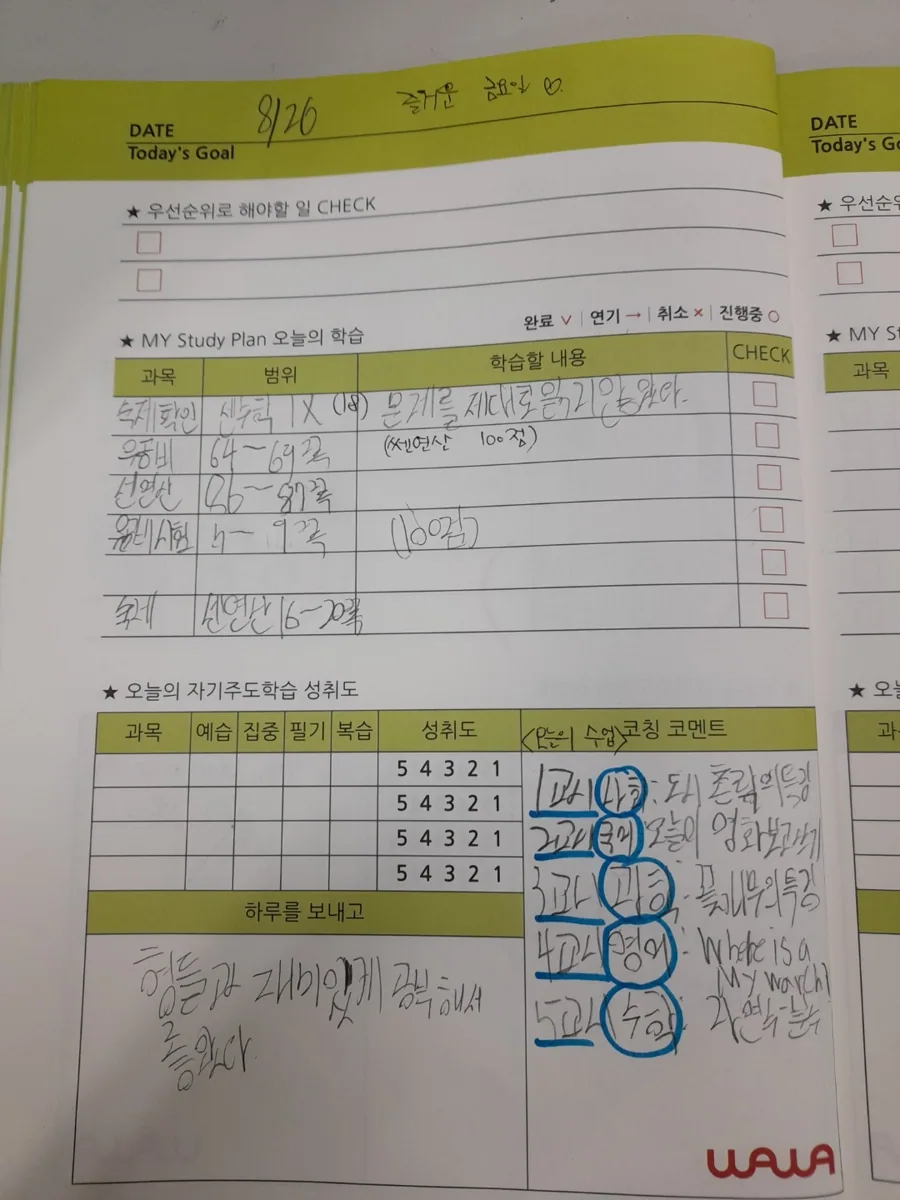 8/26 즐거운 금요일
DATE
Today's Goal
★ 우선순위로 해야할 일 CHECK
완료 ∨ | 연기 → | 취소 × | 진행중 ○
★ MY Study Plan 오늘의 학습
과목 범위 학습할 내용 CHECK
숙제확인 센수학 1X (18) 문제를 제대로 읽지 않았다.
64~69쪽 (쎈연산 100점)
선연산 86~87쪽
4~6쪽 (100점)
숙제 쎈연산 19~20쪽
★ 오늘의 자기주도학습 성취도
과목 예습 집중 필기 복습 성취도 <오늘의 수업> 코칭 코멘트
5 4 3 2 1
5 4 3 2 1
5 4 3 2 1
5 4 3 2 1
1교시 사회: 도시 촌락의 특징
2교시 국어 영화보고
3교시 과학: 특징
4교시 영어: Where is a
My
5교시 수학: 자연수÷분수
하루를 보내고
형들과 재미있게 공부해서
좋았다.
WAWA
DATE
Today's Go
★ 우선순위
★ MY St
과목
★ 오늘
과